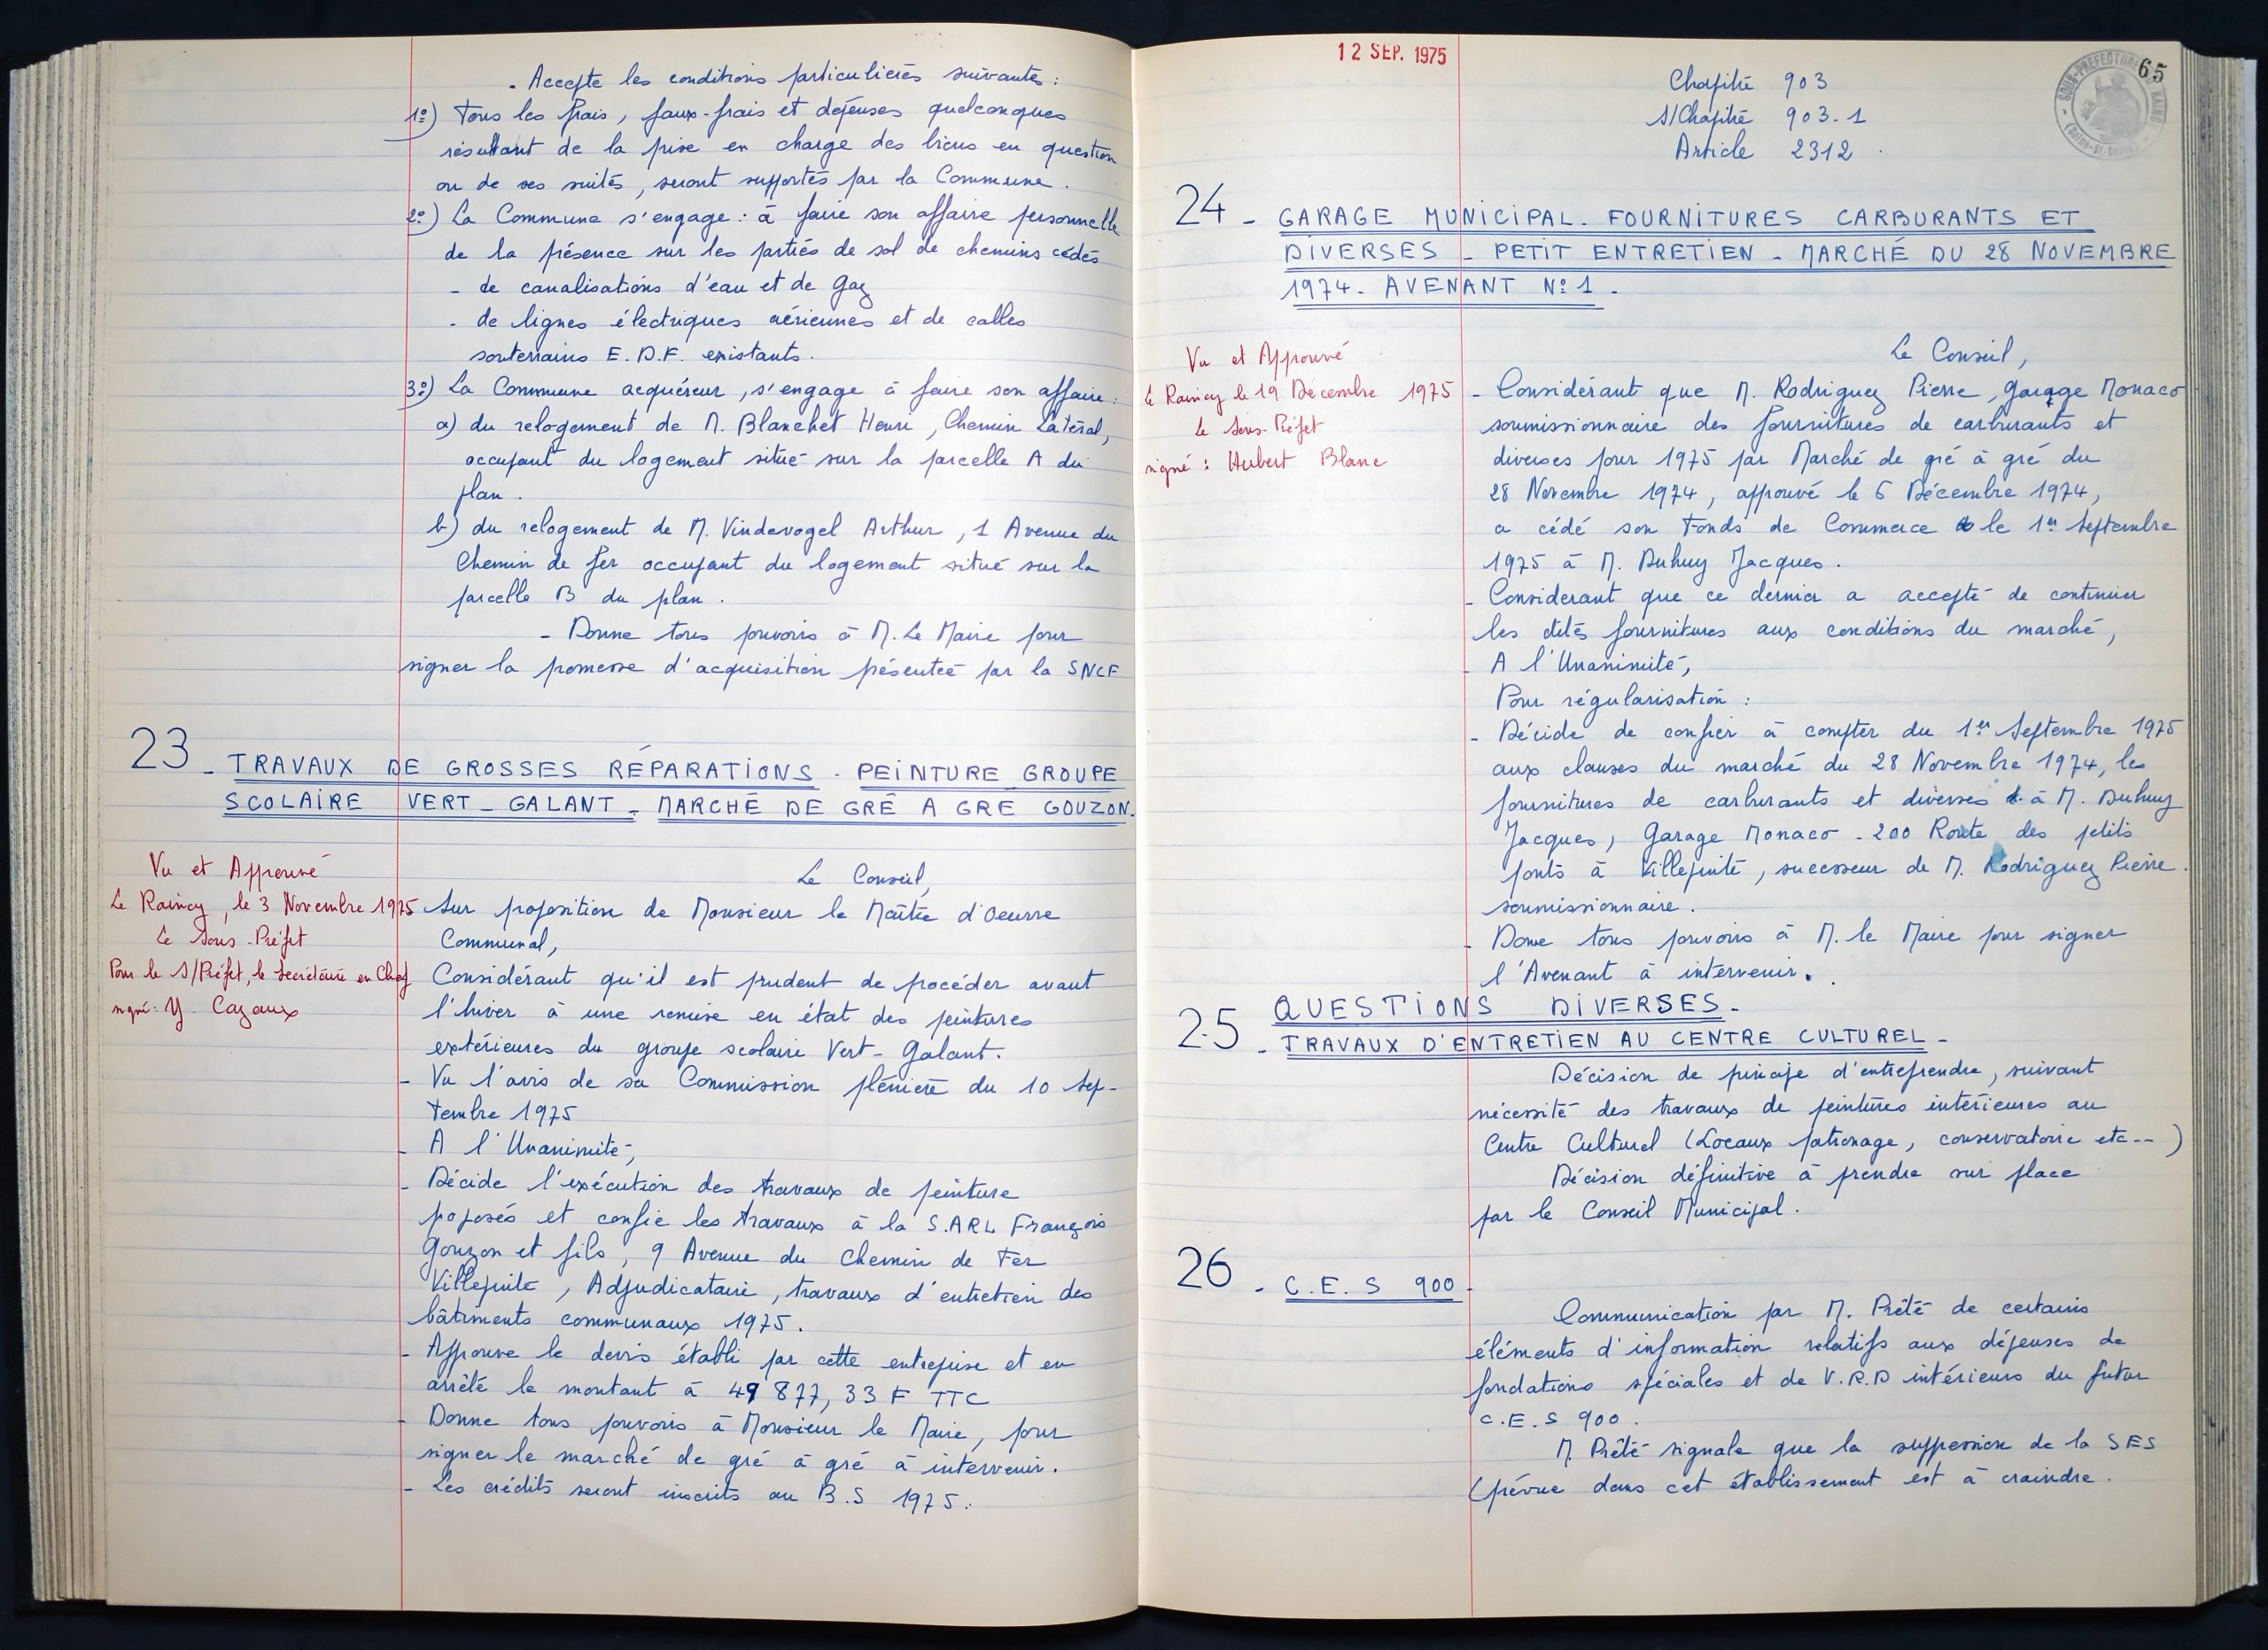 - Accepte les conditions particulières suivantes :
1º) Tous les frais, faux-frais et dépenses quelconques
résultant de la prise en charge des biens en question
ou de ses suites, seront supportés par la Commune.
2º) La Commune s'engage : à faire son affaire personnelle
de la présence sur les parties de sol de chemins cédés
- de canalisations d'eau et de Gaz
- de lignes électriques aériennes et de cables
souterrains E.D.F. existants.
3º) La Commune acquéreur, s'engage à faire son affaire :
a) du relogement de M. Blanchet Henri, Chemin Latéral,
occupant du logement situé sur la parcelle A du
plan.
b) du relogement de M. Vindevogel Arthur, 1 Avenue du
Chemin de fer occupant du logement situé sur la
parcelle B du plan.
- Donne tous pouvoirs à M. Le Maire pour
signer la promesse d'acquisition présentée par la SNCF
23 - TRAVAUX DE GROSSES RÉPARATIONS - PEINTURE GROUPE
SCOLAIRE VERT-GALANT - MARCHÉ DE GRÉ A GRE GOUZON.
Vu et Approuvé
Le Raincy, le 3 Novembre 1975
Le Sous-Préfet
Pour le S/Préfet, le Secrétaire en Chef
signé : Y. Cazaux
Le Conseil,
Sur proposition de Monsieur le Maître d'Oeuvre
Communal,
Considérant qu'il est prudent de procéder avant
l'hiver à une remise en état des peintures
extérieures du groupe scolaire Vert-Galant.
- Vu l'avis de sa Commission plénière du 10 Sep-
tembre 1975
- A l'Unanimité,
- Décide l'exécution des travaux de peinture
proposés et confie les travaux à la S.ARL François
Gouzon et fils, 9 Avenue du Chemin de Fer
Villepinte, Adjudicataire, travaux d'entretien des
bâtiments communaux 1975.
- Approuve le devis établi par cette entreprise et en
arrêté le montant à 49 877,33 F TTC
- Donne tous pouvoirs à Monsieur le Maire, pour
signer le marché de gré à gré à intervenir.
- Les crédits seront inscrits au B.S 1975.
12 SEP. 1975
65
Chapitre 903
S/Chapitre 903.1
Article 2312.
24 - GARAGE MUNICIPAL. FOURNITURES CARBURANTS ET
DIVERSES - PETIT ENTRETIEN - MARCHÉ DU 28 NOVEMBRE
1974. AVENANT Nº 1.
Vu et Approuvé
Le Raincy le 19 Décembre 1975
Le Sous-Préfet
signé : Hubert Blanc
Le Conseil,
- Considérant que M. Rodriguez Pierre, Garage Monaco
soumissionnaire des fournitures de carburants et
diverses pour 1975 par Marché de gré à gré du
28 Novembre 1974, approuvé le 6 Décembre 1974,
a cédé son Fonds de Commerce le 1er Septembre
1975 à M. Duhuy Jacques.
- Considerant que ce dernier a accepté de continuer
les dites fournitures aux conditions du marché,
- A l'Unanimité,
Pour régularisation :
- Décide de confier à compter du 1er Septembre 1975
aux clauses du marché du 28 Novembre 1974, les
fournitures de carburants et diverses à M. Duhuy
Jacques, Garage Monaco - 200 Route des petits
ponts à Villepinte, successeur de M. Rodriguez Pierre.
soumissionnaire.
- Donne tous pouvoirs à M. le Maire pour signer
l'Avenant à intervenir.
25 QUESTIONS DIVERSES -
- TRAVAUX D'ENTRETIEN AU CENTRE CULTUREL -
Décision de principe d'entreprendre, suivant
nécessité des travaux de peintures intérieures au
Centre Culturel (Locaux patronage, conservatoire etc--)
Décision définitive à prendre sur place
par le Conseil Municipal.
26 - C.E.S 900 -
Communication par M. Prêté de certains
éléments d'information relatifs aux dépenses de
fondations spéciales et de V.R.D intérieurs du futur
C.E.S 900.
M. Prêté signale que la suppression de la SES
(prévue dans cet établissement est à craindre.